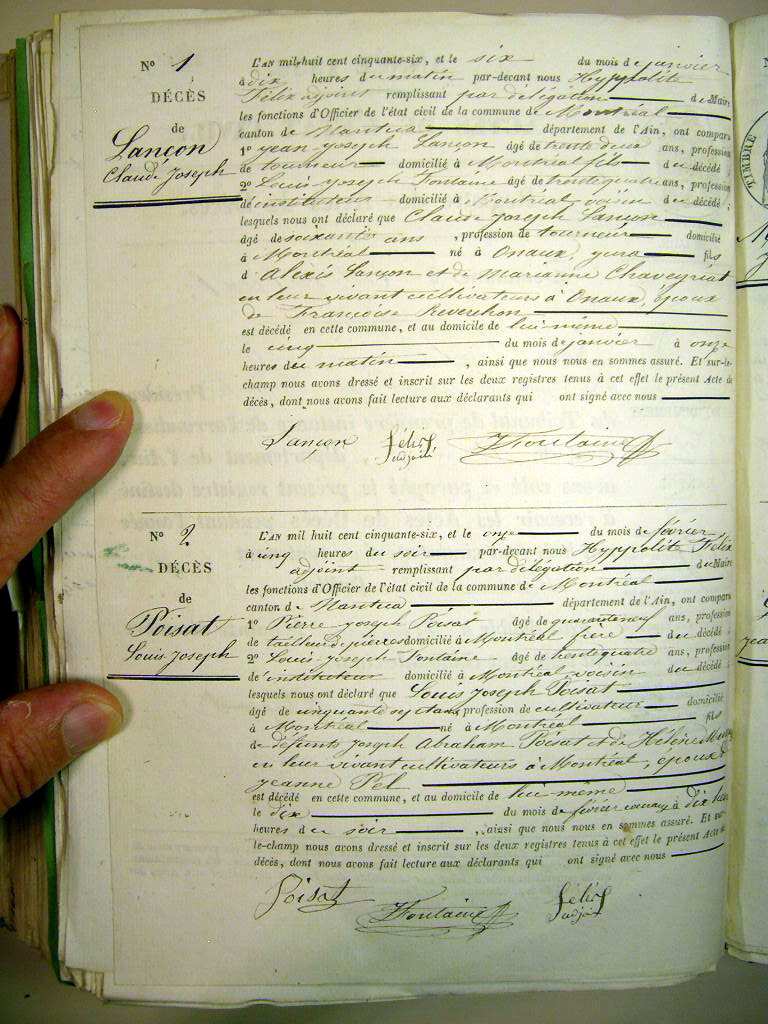 No 1
DÉCÈS
de
Lançon
Claude Joseph
L'AN mil huit cent cinquante-six, et le six du mois de janvier
à dix heures du matin par-devant nous Hyppolite
Félix adjoint remplissant par délégation de Maire
les fonctions d'Officier de l'état civil de la commune de Montréal
canton de Nantua département de l'Ain, ont comparu
1º jean joseph Lançon âgé de trente deux ans, profession
de tourneur domicilié à Montréal fils du décédé ;
2º Louis joseph Fontaine âgé de trente quatre ans, profession
de instituteur domicilié à Montréal voisin du décédé ;
lesquels nous ont déclaré que Claude joseph Lançon
âgé de soixante ans, profession de tourneur domicilié
à Montréal né à Onaux, jura fils
d'Alexis Lançon et de Marianne Chaveyriat
en leur vivant cultivateurs à Onaux, époux
de Françoise Reverchon
est décédé en cette commune, et au domicile de lui même
le cinq du mois de janvier à onze
heures du matin, ainsi que nous nous en sommes assuré. Et sur-le-
champ nous avons dressé et inscrit sur les deux registres tenus à cet effet le présent Acte de
décès, dont nous avons fait lecture aux déclarants qui ont signé avec nous
Lançon Félix adjoint Fontaine
No 2
DÉCÈS
de
Poisat
Louis Joseph
L'AN mil huit cent cinquante-six, et le onze du mois de février
à cinq heures du soir par-devant nous Hyppolite Félix
adjoint remplissant par délégation de Maire
les fonctions d'Officier de l'état civil de la commune de Montréal
canton de Nantua département de l'Ain, ont comparu
1º Pierre joseph Poisat âgé de quarante neuf ans, profession
de tailleur de pierres domicilié à Montréal frère du décédé ;
2º Louis joseph Fontaine âgé de trente quatre ans, profession
de instituteur domicilié à Montréal voisin du décédé ;
lesquels nous ont déclaré que Louis Joseph Poisat
âgé de cinquante sept ans, profession de cultivateur domicilié
à Montréal né à Montréal fils
de défunts joseph Abraham Poisat et de Hélène
en leur vivant cultivateurs à Montréal, époux de
jeanne Pel
est décédé en cette commune, et au domicile de lui même
le dix du mois de février courant à dix
heures du soir, ainsi que nous nous en sommes assuré. Et sur-
le-champ nous avons dressé et inscrit sur les deux registres tenus à cet effet le présent Acte de
décès, dont nous avons fait lecture aux déclarants qui ont signé avec nous
Poisat Fontaine Félix adjoint
TIMBRE